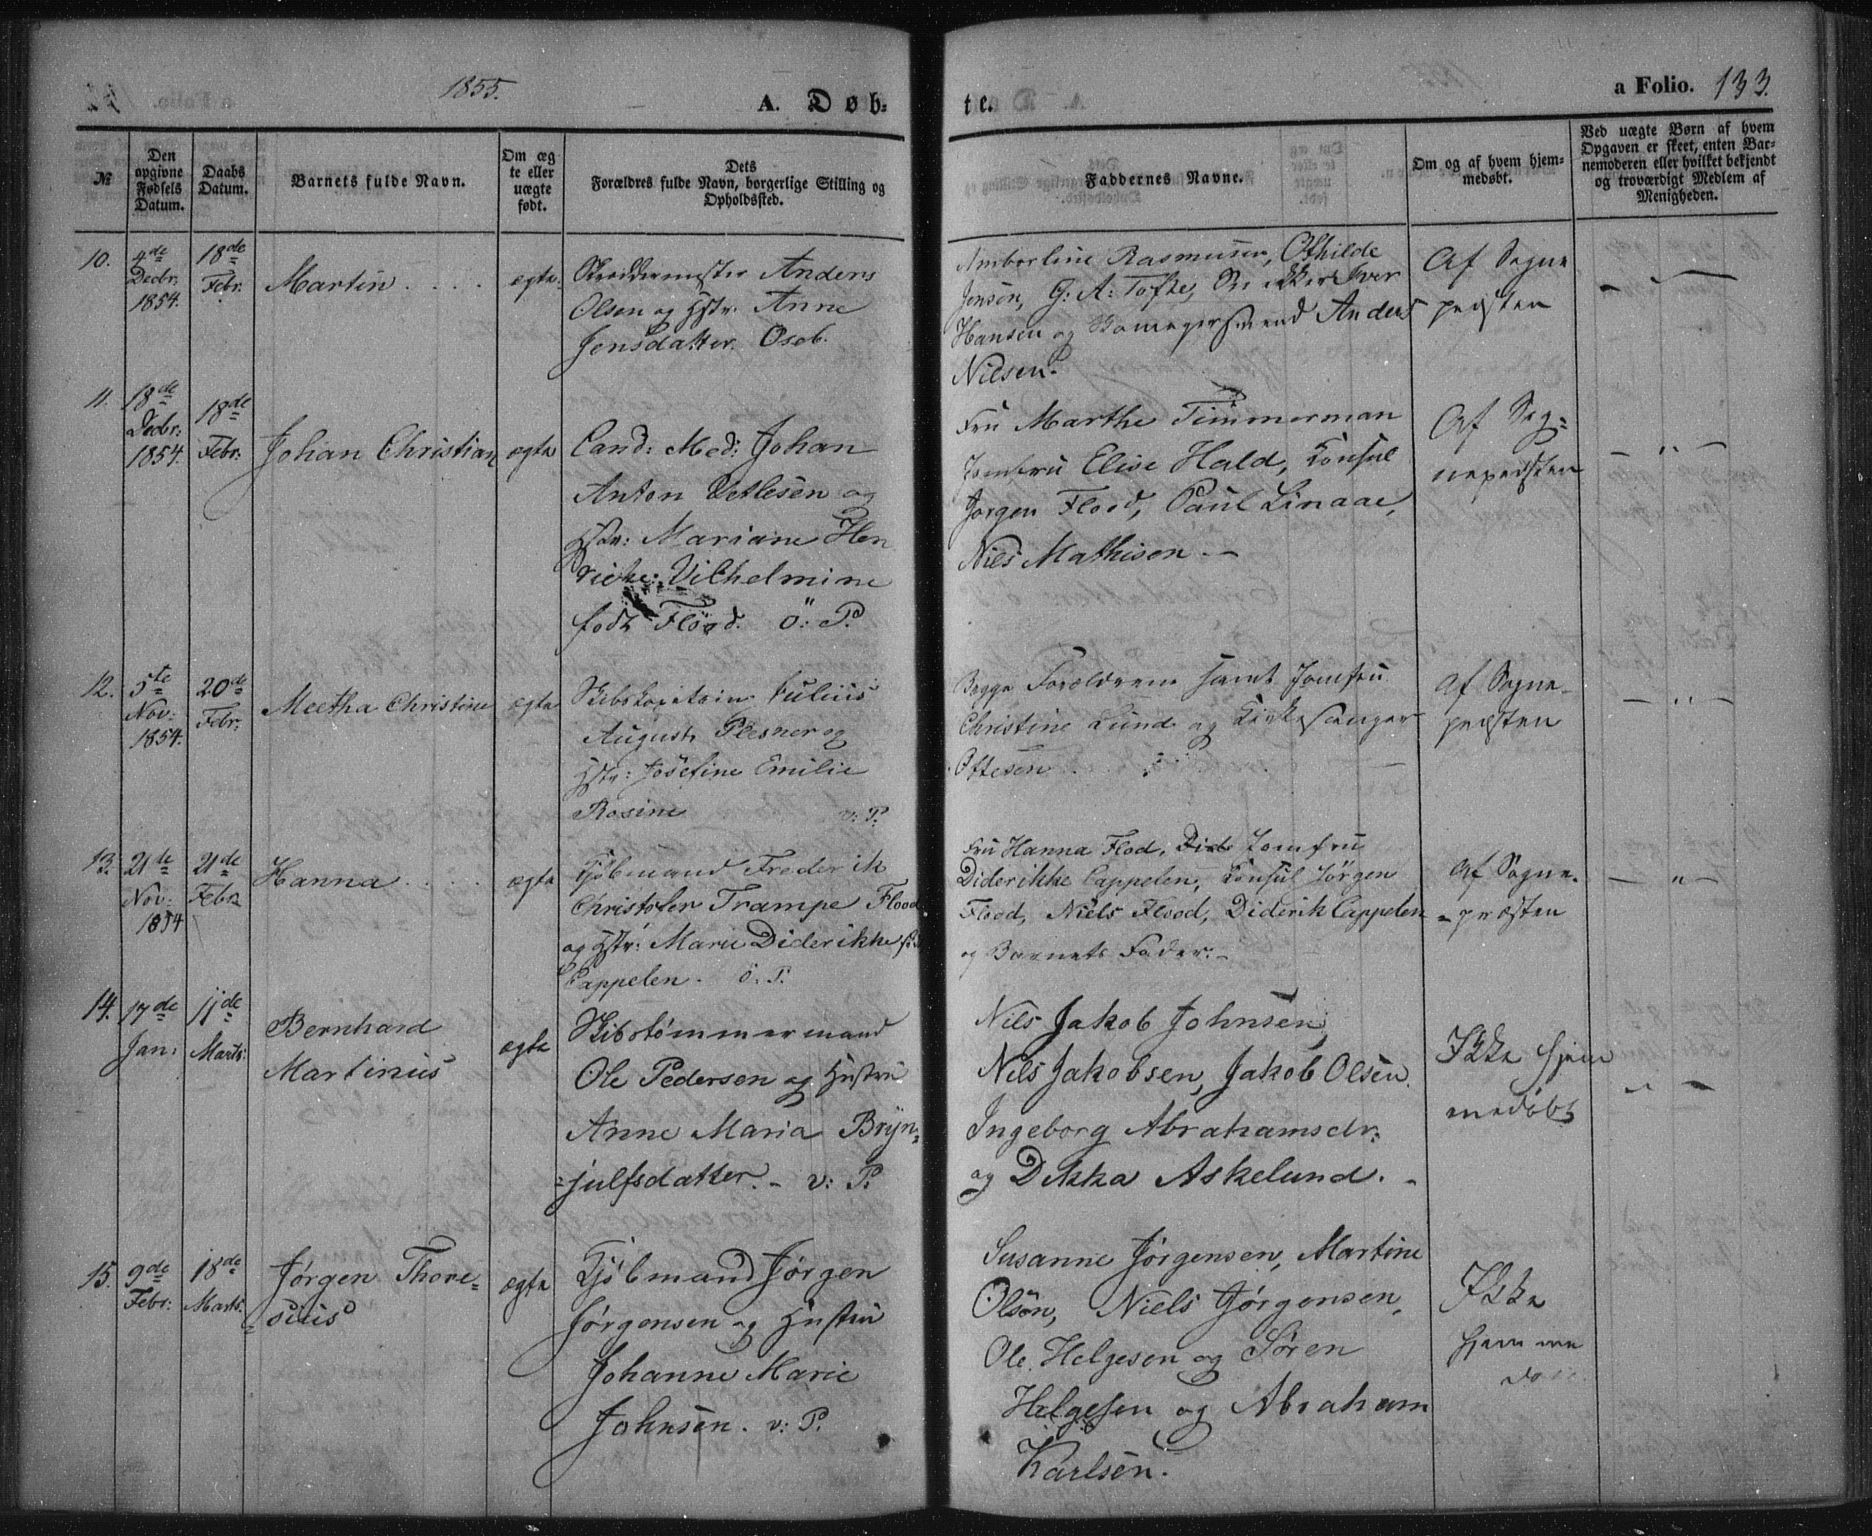 1855.
A. Døb-
te.
a Folio. 133.
№
Den opgivne Fødsels Datum.
Daabs Datum.
Barnets fulde Navn.
Om ægte eller uægte født.
Dets
Forældres fulde Navn, borgerlige Stilling og
Opholdssted.
Faddernes Navne.
Om og af hvem hjem-
medøbt.
Ved uægte Børn af hvem
Opgaven er skeet, enten Bar-
nemoderen eller hvilket bekjendt
og troværdigt Medlem af
Menigheden.
10.
4de Decbr. 1854.
18de Febr.
Martin
ægte.
Skræddermester Anders
Olsen og Hstr. Anne
Jensdatter. Oseb.
Amborline Rasmussen, Othilde
Jensen, G: A: Tofte, Iver
Hansen og Anders
Nilsen.
Af Sogne
præsten
11.
18de Decbr: 1854.
18de Febr:
Johan Christian
ægte
Cand: Med: Johan
Anton Vetlesen og
Hstr: Mariane Hen
rikke Vilhelmine
født Flood. ö: P.
Fru Marthe Timmerman
Jomfru Elise Hald, Konsul
Jørgen Flood, Paul Linaae,
Niels Mathisen
Af Sog-
nepræsten
12.
5te Nov: 1854.
20de Febr:
Meetha Christine
ægte
Skibskapitain Julius
August Plesner og
Hstr: Josefine Emilie
Rosine v: P.
Begge Forældrene samt Jomfru
Christine Lund og Kirkesanger
Ottesen
Af Sogne-
præsten
13.
21de Nov: 1854
21de Febr
Hanna
ægte
Kjøbmand Frederik
Christofer Trampe Flood
og Hstr: Marie Diderikke
Cappelen. ö. P.
Fru Hanna Flod, Jomfru
Diderikke Cappelen, Konsul Jörgen
Flood, Niels Flood, Diderik Cappelen
og Barnets Fader.
Af Sogne-
præsten
14.
17de Jan:
11de Marts:
Bernhard
Martinus
ægte
Skibstømmermand
Ole Pedersen og Hustru
Anne Maria Bryn-
julfsdatter. - v: P.
Nils Jakob Johnsen,
Nils Jakobsen, Jakob Olsen
Ingeborg Abrahamsdr:
og Dikka Askelund.
Ikke hjem
medøbt
15.
9de Febr:
18de Marts.
Jørgen Thore-
sius
ægte
Kjøbmand Jørgen
Jørgensen og Hustru
Johanne Marie
Johnsen. v: P.
Susanne Jørgensen, Martine
Olsen, Niels Jørgensen,
Ole Helgesen og Søren
Helgesen og Abraham
Karlsen.
Ikke
hjemme